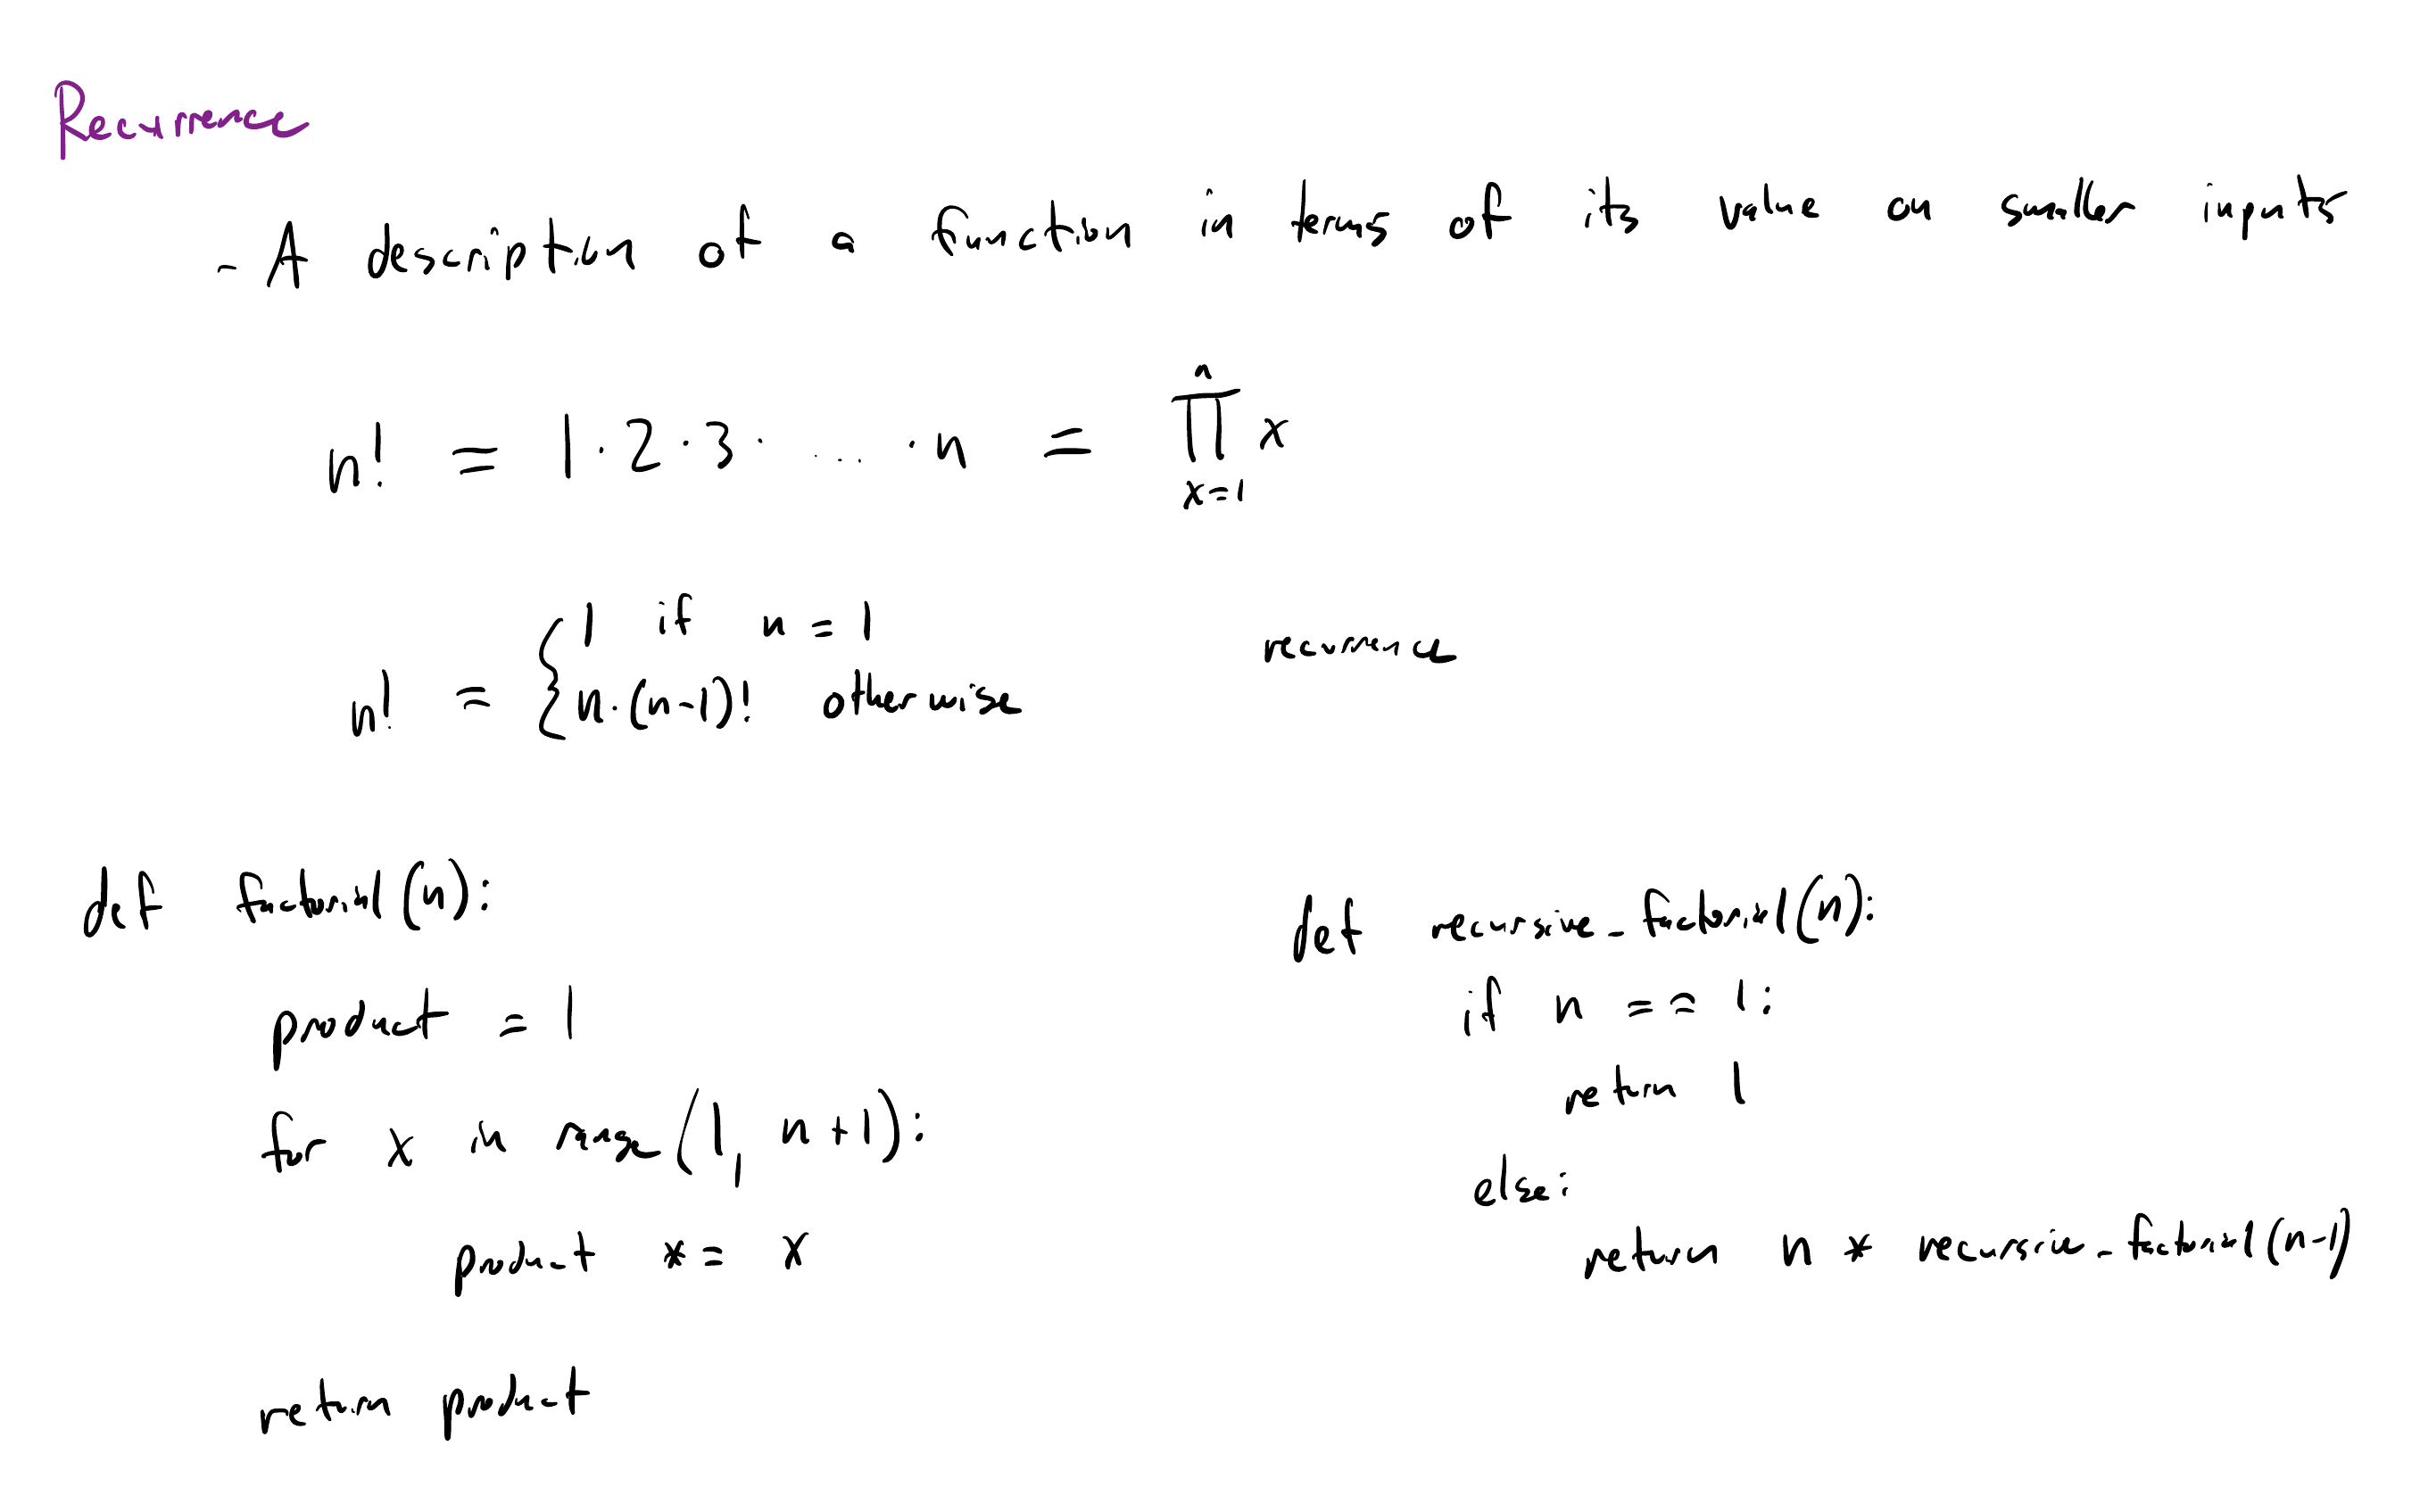 Recurrence
- A description of a function in terms of its value on smaller inputs
n! = 1·2·3· ... ·n = ∏_{x=1}^{n} x
n! = { 1 if n = 1
n·(n-1)! otherwise
recurrence
def factorial(n):
product = 1
for x in range(1, n+1):
product *= x
return product
def recursive_factorial(n):
if n == 1:
return 1
else:
return n * recursive_factorial(n-1)